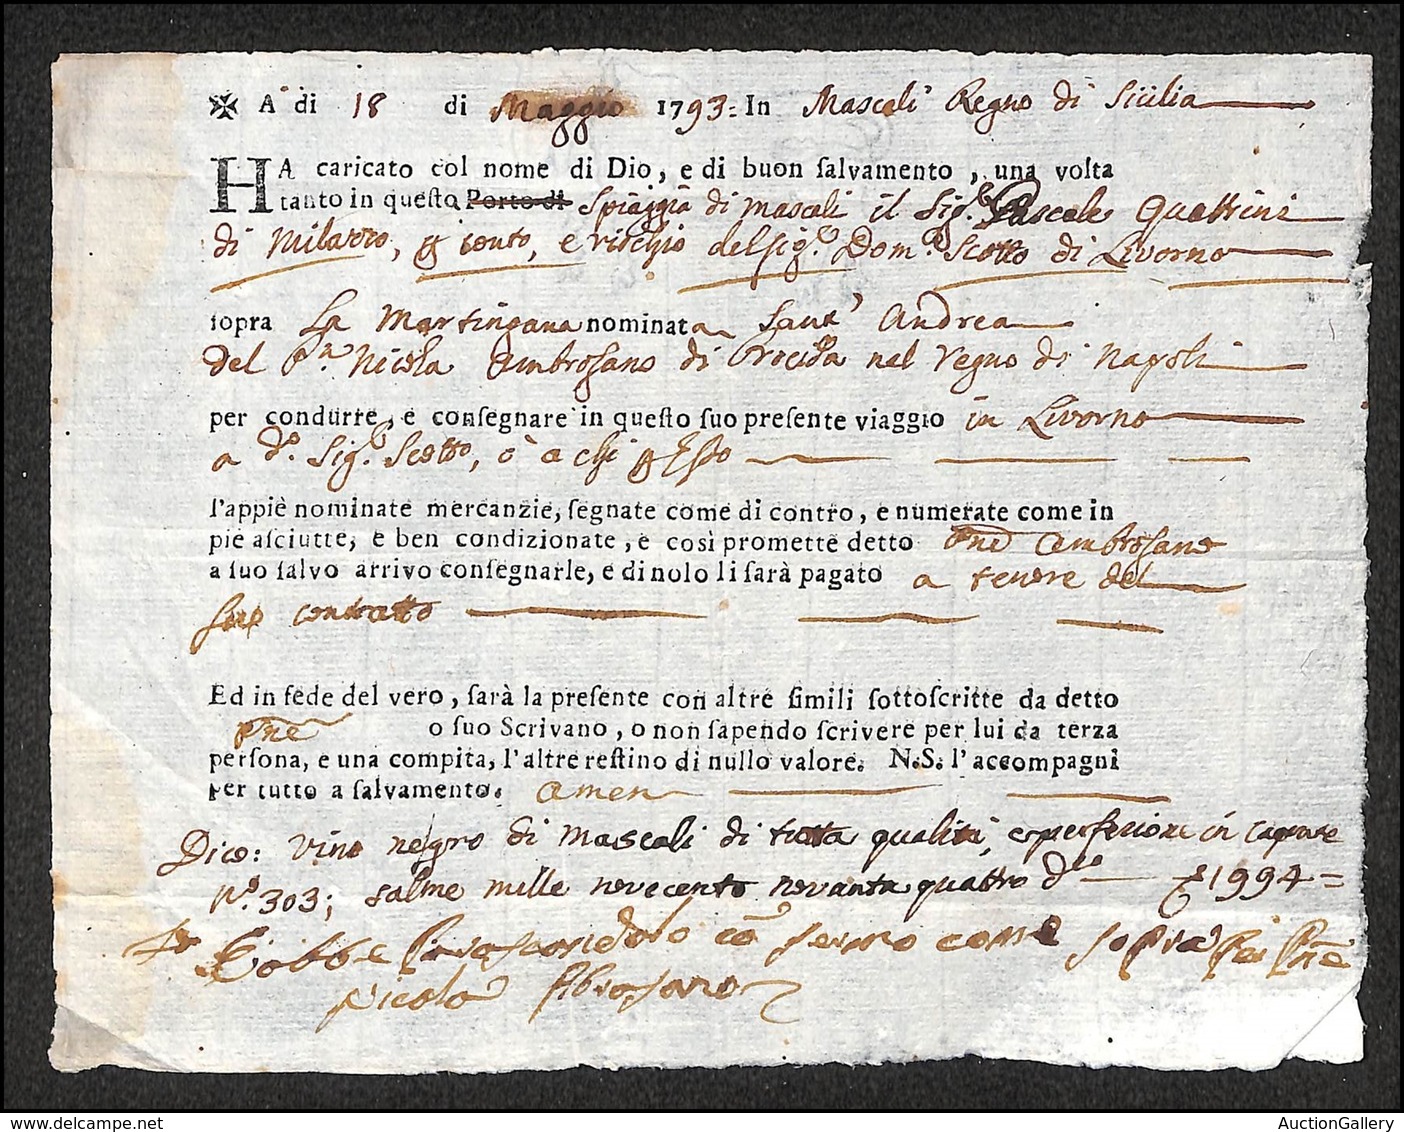 ✠ A di 18 di Maggio 1793 = In Mascali Regno di Sicilia
HA caricato col nome di Dio, e di buon ſalvamento, una volta
tanto in queſto Porto di Spiaggia di Mascali il Sig.r Pascale Quattrini
di Milazzo, p conto, e rischio del Sig.r Dom.o Scotto di Livorno
ſopra La Martingana nominata Sant' Andrea
del P.n Nicola Ambrosano di Procida nel Regno di Napoli
per condurre, e conſegnare in queſto ſuo preſente viaggio in Livorno
a d.o Sig.r Scotto, ò a chi p Esso
l'appiè nominate mercanzie, ſegnate come di contro, e numerate come in
piè aſciutte, e ben condizionate, e così promette detto Pne Ambrosano
a ſuo ſalvo arrivo conſegnarle, e di nolo li ſarà pagato a tenore del
suo contratto
Ed in fede del vero, ſarà la preſente con altre ſimili ſottoſcritte da detto
Pne o ſuo Scrivano, o non ſapendo ſcrivere per lui da terza
perſona, e una compita, l'altre reſtino di nullo valore. N.S. l'accompagni
per tutto a ſalvamento. Amen
Dico: vino negro di Mascali di tutta qualità, e perfezione in
N.o 303; salme mille novecento novanta quattro 1994 =
come sopra Pne
Nicola
AuctionGallery